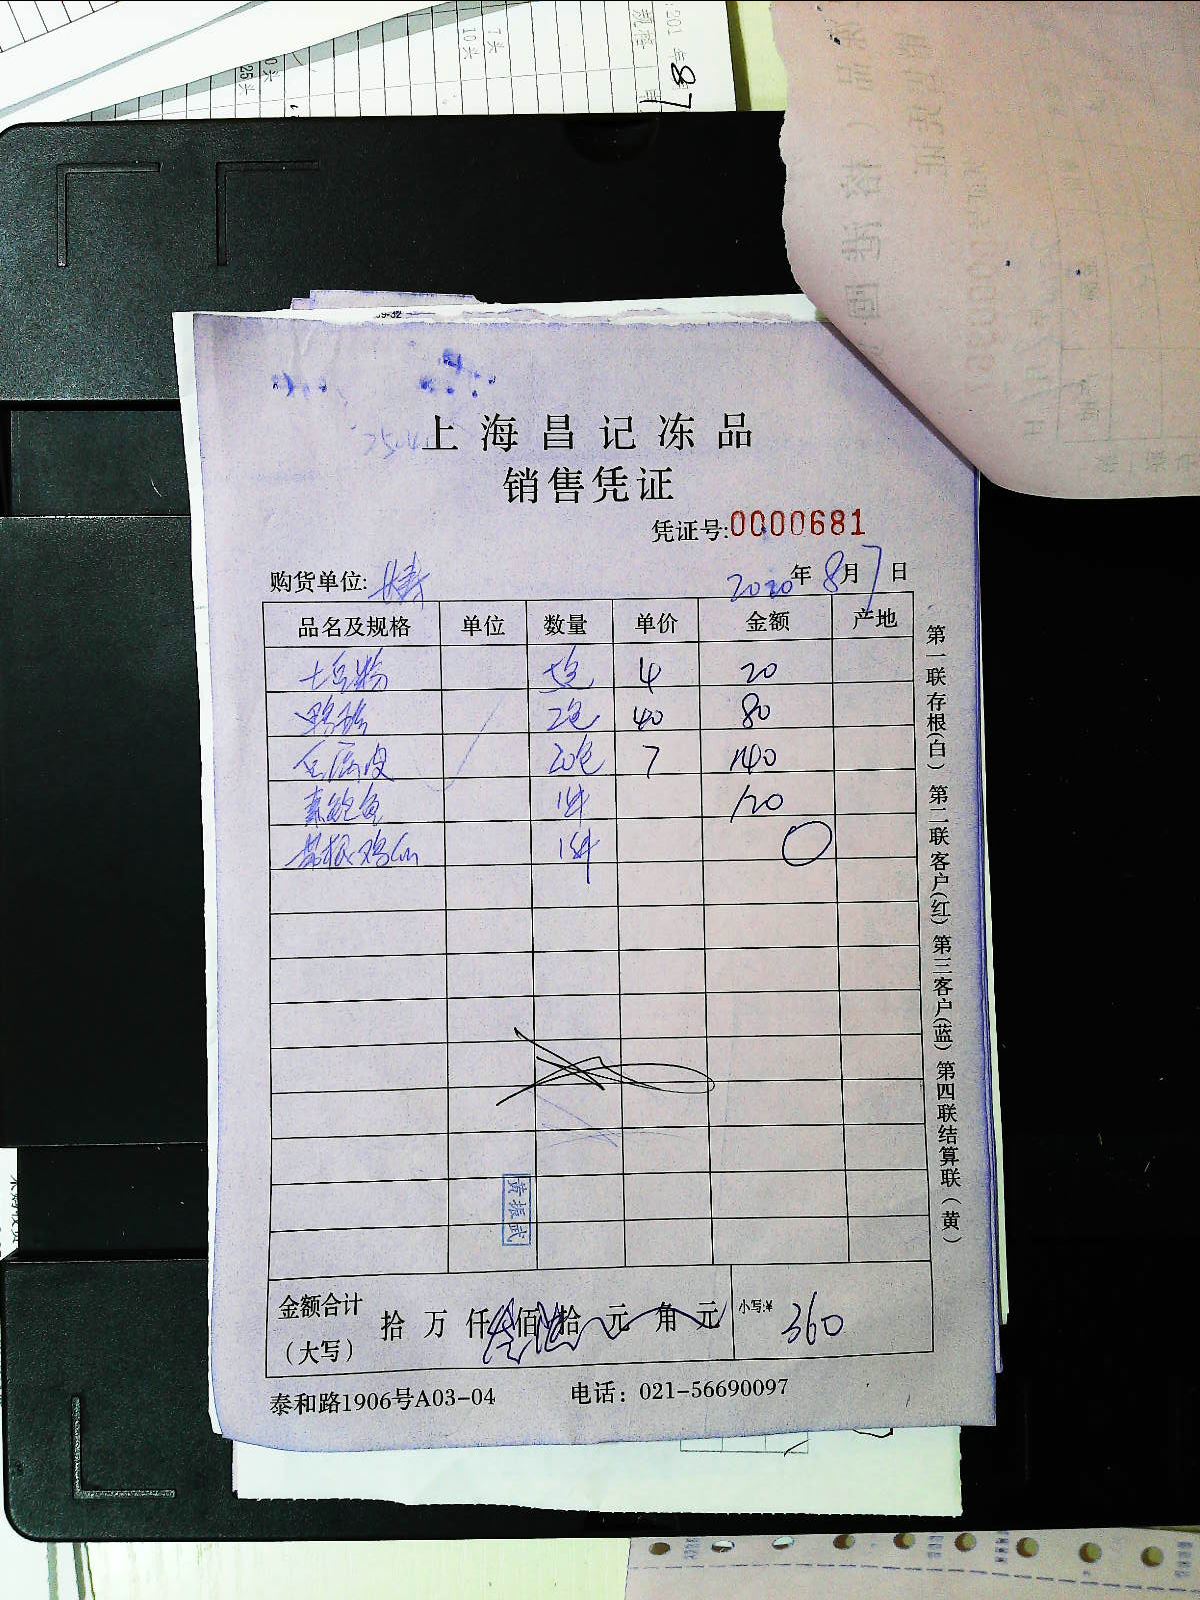 上海昌记冻品
销售凭证
凭证号:0000681
购货单位:
2020年8月7日
品名及规格 单位 数量 单价 金额 产地
土豆粉 5包 4 20
鸭胗 2包 40 80
千层皮 20包 7 140
素鲍鱼 1件 120
1件 0
黄振武
金额合计(大写) 拾 万 仟 佰 拾 元 角 元 小写:¥ 360
泰和路1906号A03-04 电话: 021-56690097
第一联存根(白) 第二联客户(红) 第三客户(蓝) 第四联结算联(黄)